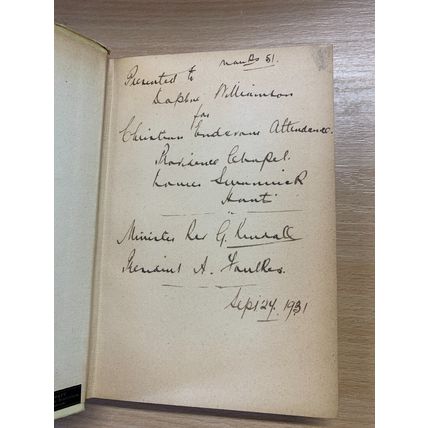 Presented to
Daphne Williamson
for
Christian Endeavour Attendance.
Providence Chapel.
Lower Swanwick
Hants
Minister Rev G. Kendall
President A. Faulkes.
Sept 27. 1931